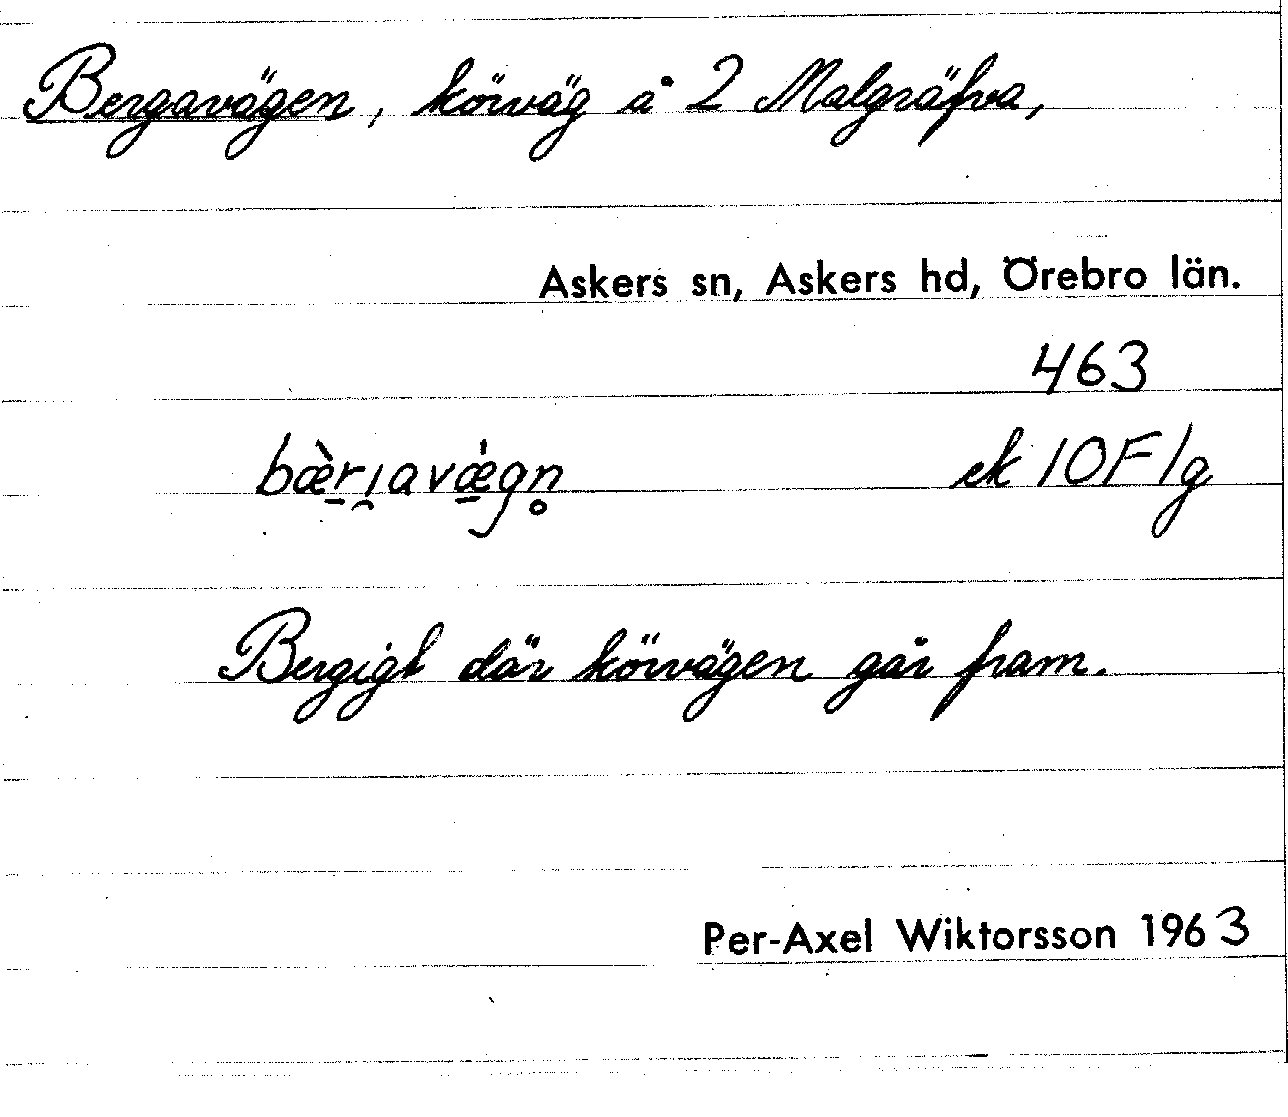 Bergavägen, körväg å 2 Malgräfva,
Askers sn, Askers hd, Örebro län.
463
bæ̀rıavǽgn̥ ek 10F1g
Bergigt där körvägen går fram.
Per-Axel Wiktorsson 1963